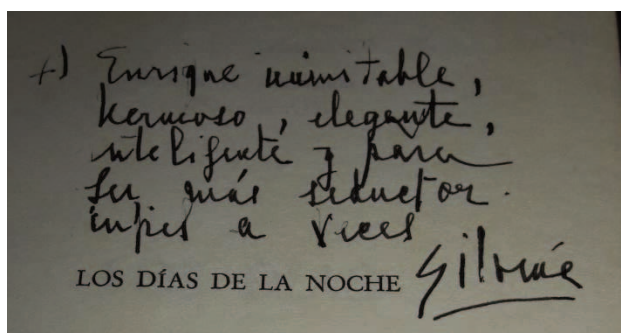 +) Enrique inimitable,
hermoso, elegante,
inteligente y para
ser más seductor.
a veces
LOS DÍAS DE LA NOCHE Silvina